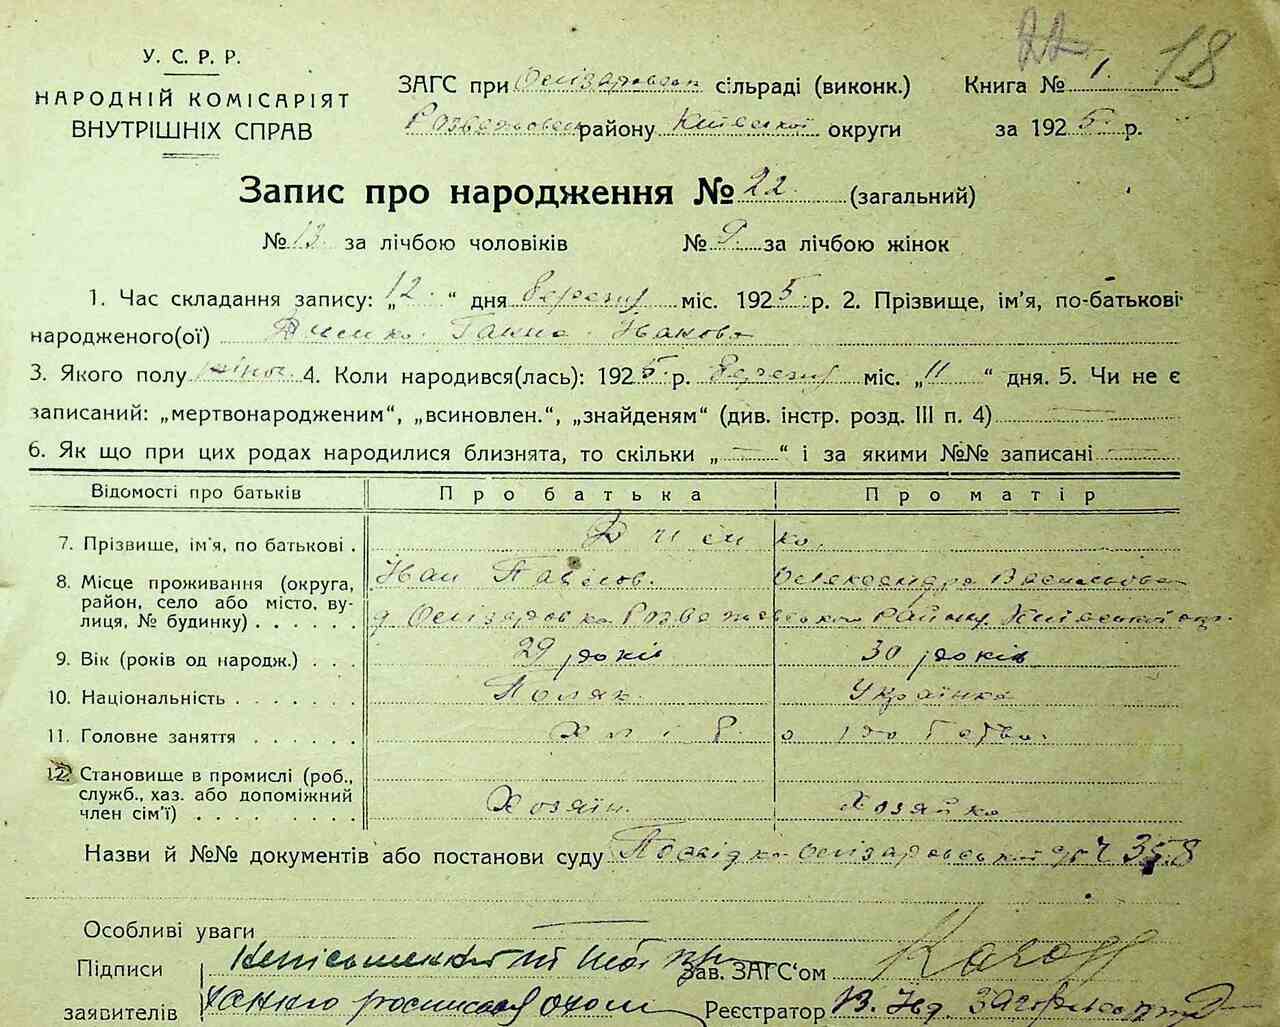 22 18
У. С. Р. Р.
НАРОДНІЙ КОМІСАРІЯТ
ВНУТРІШНІХ СПРАВ
ЗАГС при сільраді (виконк.) Книга № 1.
району Київської округи за 1925 р.
Запис про народження № 22. (загальний)
№ 13 за лічбою чоловіків № 9. за лічбою жінок
1. Час складання запису: „12“ дня березня міс. 1925 р. 2. Прізвище, ім'я, по-батькові
народженого(ої) Ганна Іванова
3. Якого полу жіноч 4. Коли народився(лась): 1925 р. березня міс. „11“ дня. 5. Чи не є
записаний: „мертвонародженим“, „всиновлен.“, „знайденям“ (див. інстр. розд. III п. 4) —
6. Як що при цих родах народилися близнята, то скільки „—“ і за якими №№ записані —
Відомості про батьків Про батька Про матір
7. Прізвище, ім'я, по батькові .
Іван Павлов. Олександра Васильова
8. Місце проживання (округа,
район, село або місто, ву-
лиця, № будинку) . . . . . . району Київської окр.
9. Вік (років од народж.) . . . 29 років 30 років
10. Національність . . . . . . . Поляк. Українка
11. Головне заняття . . . . . . Хліборобство.
12. Становище в промислі (роб.,
служб., хаз. або допоміжний
член сім'ї) . . . . . . . . . Хозяїн. Хозяйка
Назви й №№ документів або постанови суду Посвідка 358
Особливі уваги —
Підписи
заявителів
Зав. ЗАГС'ом
Реєстратор